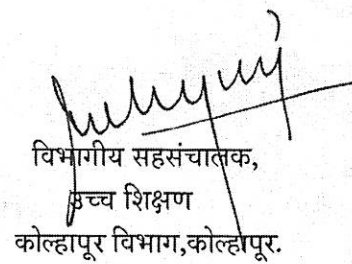 विभागीय सहसंचालक,
उच्च शिक्षण
कोल्हापूर विभाग,कोल्हापूर.